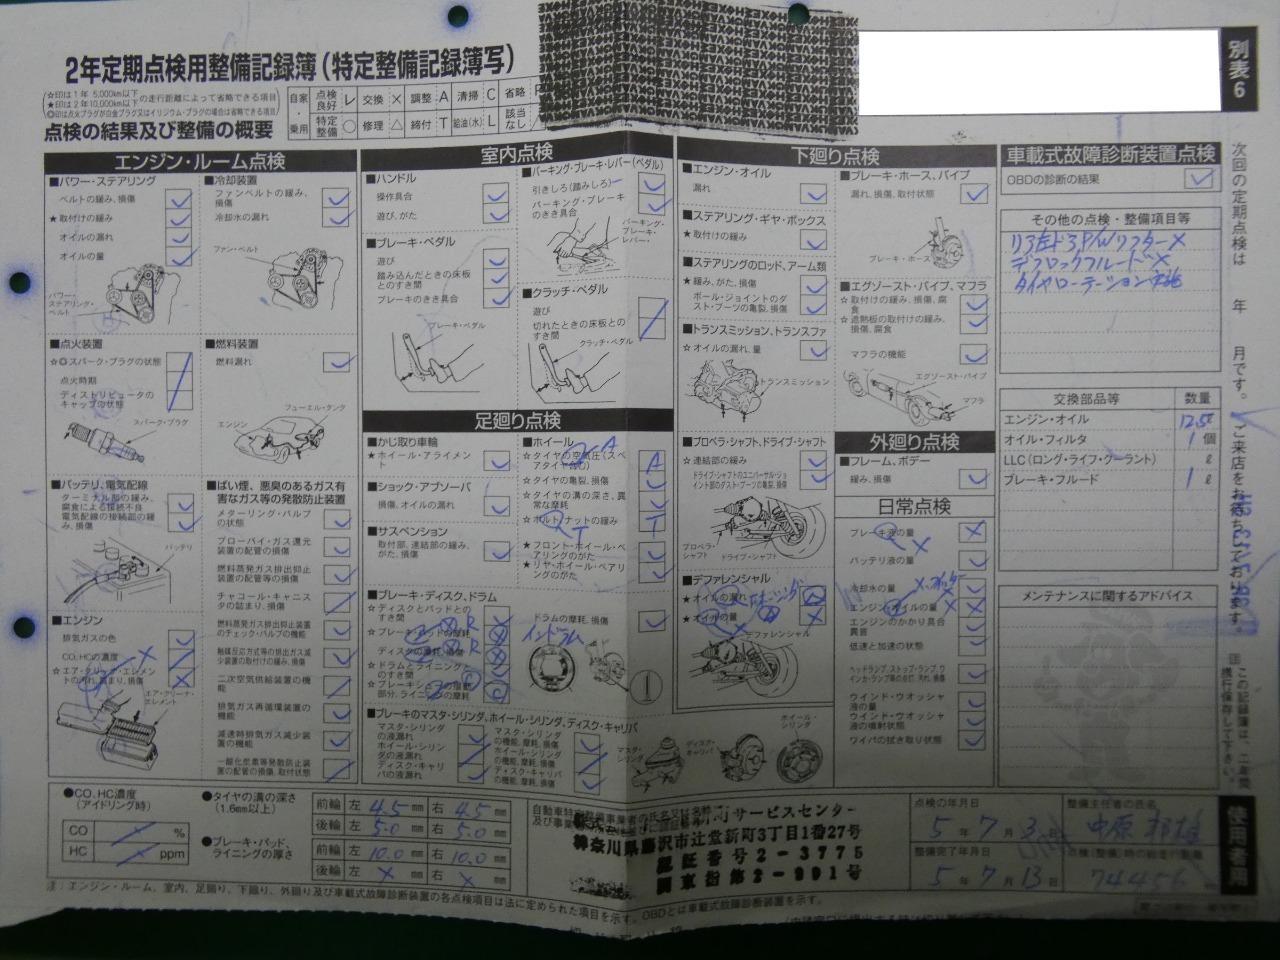 2年定期点検用整備記録簿(特定整備記録簿写)
別表6
☆印は1年 5,000km以下
★印は2年10,000km以下
の走行距離によって省略できる項目
◎印は点火プラグが白金プラグ又はイリジウム・プラグの場合は省略できる項目
点検の結果及び整備の概要
自家・乗用
点検良好 レ 交換 × 調整 A 清掃 C 省略
特定整備 ○ 修理 △ 締付 T 給油(水) L 該当なし /
エンジン・ルーム点検
■パワー・ステアリング
ベルトの緩み、損傷
★取付けの緩み
オイルの漏れ
オイルの量
パワー・ステアリング・ベルト
■冷却装置
ファンベルトの緩み、損傷
冷却水の漏れ
ファン・ベルト
■点火装置
☆◎スパーク・プラグの状態
点火時期
ディストリビュータのキャップの状態
スパーク・プラグ
■燃料装置
燃料漏れ
フューエル・タンク
エンジン
■バッテリ、電気配線
ターミナル部の緩み、腐食による接続不良
電気配線の接続部の緩み、損傷
バッテリ
■ばい煙、悪臭のあるガス有害なガス等の発散防止装置
メターリング・バルブの状態
ブローバイ・ガス還元装置の配管の損傷
燃料蒸発ガス排出抑止装置の配管等の損傷
チャコール・キャニスタの詰まり、損傷
燃料蒸発ガス排出抑止装置のチェック・バルブの機能
触媒反応方式等の排出ガス減少装置の取付けの緩み、損傷
二次空気供給装置の機能
排気ガス再循環装置の機能
減速時排気ガス減少装置の機能
一酸化炭素等発散防止装置の配管の損傷、取付状態
■エンジン
排気ガスの色
CO、HCの濃度
☆エア・クリーナ・エレメントの汚れ、詰まり、損傷
エア・クリーナ・エレメント
室内点検
■ハンドル
操作具合
遊び、がた
■ブレーキ・ペダル
遊び
踏み込んだときの床板とのすき間
ブレーキのきき具合
ブレーキ・ペダル
■パーキング・ブレーキ・レバー(ペダル)
引きしろ(踏みしろ)
パーキング・ブレーキのきき具合
パーキング・ブレーキ・レバー
■クラッチ・ペダル
遊び
切れたときの床板とのすき間
クラッチ・ペダル
足廻り点検
■かじ取り車輪
★ホイール・アライメント
■ショック・アブソーバ
損傷、オイルの漏れ
■サスペンション
取付部、連結部の緩み、がた、損傷
■ホイール
☆タイヤの空気圧(スペアタイヤ含む) A
☆タイヤの亀裂、損傷
☆タイヤの溝の深さ、異常な摩耗
☆ボルト、ナットの緩み T
★フロント・ホイール・ベアリングのがた
★リヤ・ホイール・ベアリングのがた
■ブレーキ・ディスク、ドラム
☆ディスクとパッドとのすき間
☆ブレーキ・パッドの摩耗
ディスクの摩耗、損傷
☆ドラムとライニングとのすき間
☆ブレーキシューの摺動部分、ライニングの摩耗
ドラムの摩耗、損傷
インドラム
①
■ブレーキのマスタ・シリンダ、ホイール・シリンダ、ディスク・キャリパ
マスタ・シリンダの液漏れ
ホイール・シリンダの液漏れ
ディスク・キャリパの液漏れ
マスタ・シリンダの機能、摩耗、損傷
ホイール・シリンダの機能、摩耗、損傷
ディスク・キャリパの機能、摩耗、損傷
マスタ・シリンダ
ディスク・キャリパ
ホイール・シリンダ
下廻り点検
■エンジン・オイル
漏れ
■ステアリング・ギヤ・ボックス
★取付けの緩み
■ステアリングのロッド、アーム類
★緩み、がた、損傷
ボール・ジョイントのダスト・ブーツの亀裂、損傷
■トランスミッション、トランスファ
☆オイルの漏れ、量
トランスミッション
■プロペラ・シャフト、ドライブ・シャフト
☆連結部の緩み
ドライブ・シャフトのユニバーサル・ジョイント部のダスト・ブーツの亀裂、損傷
プロペラ・シャフト
ドライブ・シャフト
■デファレンシャル
★オイルの漏れ
★オイルの量
デファレンシャル
■ブレーキ・ホース、パイプ
漏れ、損傷、取付状態
ブレーキ・ホース
■エグゾースト・パイプ、マフラ
☆取付けの緩み、損傷、腐食
☆遮熱板の取付けの緩み、損傷、腐食
マフラの機能
エグゾースト・パイプ
マフラ
外廻り点検
■フレーム、ボデー
緩み、損傷
日常点検
ブレーキ液の量 ×
バッテリ液の量
冷却水の量
エンジン・オイルの量 ×
エンジンのかかり具合 異音
低速と加速の状態
ヘッドランプ、ストップ・ランプ、ウインカ・ランプ等の点灯、汚れ、損傷
ウインド・ウオッシャ液の量
ウインド・ウオッシャ液の噴射状態
ワイパの拭き取り状態
車載式故障診断装置点検
OBDの診断の結果
その他の点検・整備項目等
リヌ左ドアP/Wリフター×
デフロックフルード×
タイヤローテーション実施
交換部品等 数量
エンジン・オイル 12.5ℓ
オイル・フィルタ 1個
LLC(ロング・ライフ・クーラント) ℓ
ブレーキ・フルード 1ℓ
メンテナンスに関するアドバイス
次回の定期点検は 年 月です。ご来店をお待ちしております。
この記録簿は、二年間携行保存して下さい。
使用者用
●CO、HC濃度(アイドリング時)
CO %
HC ppm
●タイヤの溝の深さ(1.6mm以上)
前輪 左 4.5 mm 右 4.5 mm
後輪 左 5.0 mm 右 5.0 mm
●ブレーキ・パッド、ライニングの厚さ
前輪 左 10.0 mm 右 10.0 mm
後輪 左 × mm 右 × mm
サービスセンター
神奈川県藤沢市辻堂新町3丁目1番27号
認証番号2-3775
関東指第2-991号
点検の年月日
5年7月3日
整備完了年月日
5年7月13日
整備主任者の氏名
点検(整備)時の総走行距離
74456
注:エンジン・ルーム、室内、足廻り、下廻り、外廻り及び車載式故障診断装置の各点検項目は法に定められた項目を示す。OBDとは車載式故障診断装置を示す。